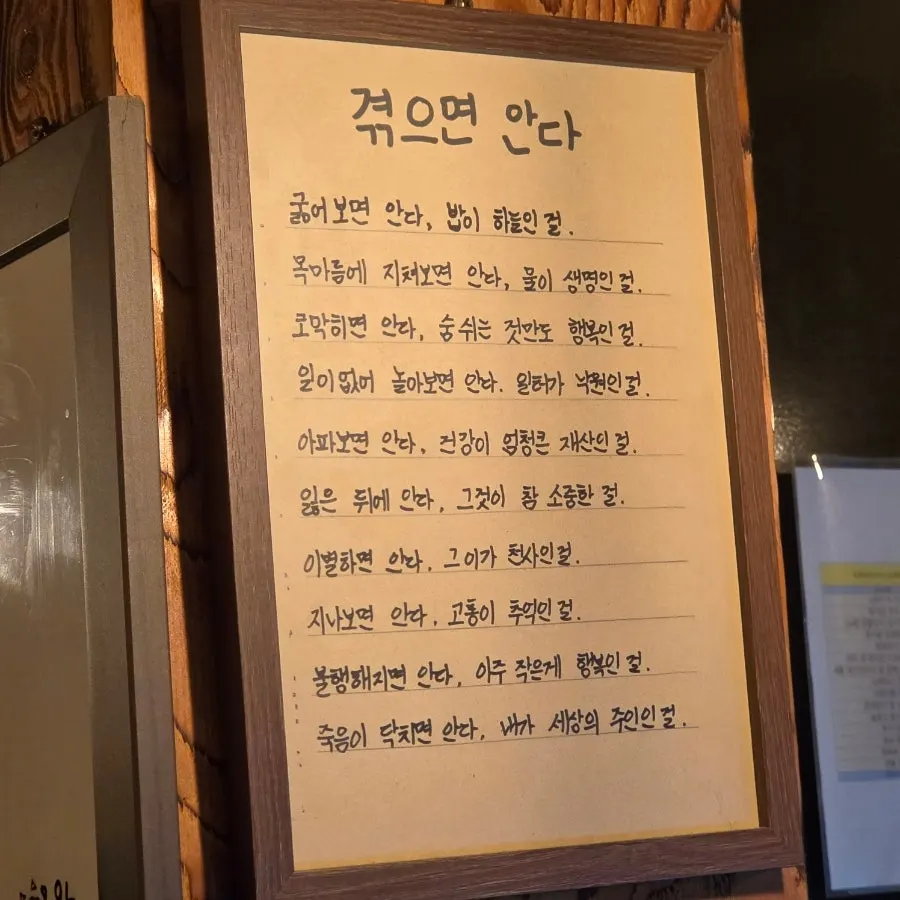 겪으면 안다
굶어보면 안다, 밥이 하늘인 걸.
목마름에 지쳐보면 안다, 물이 생명인 걸.
코막히면 안다, 숨쉬는 것만도 행복인 걸.
일이 없어 놀아보면 안다. 일터가 낙원인 걸.
아파보면 안다, 건강이 엄청큰 재산인 걸.
잃은 뒤에 안다, 그것이 참 소중한 걸.
이별하면 안다. 그이가 천사인 걸.
지나보면 안다. 고통이 추억인 걸.
불행해지면 안다, 아주 작은게 행복인 걸.
죽음이 닥치면 안다, 내가 세상의 주인인 걸.